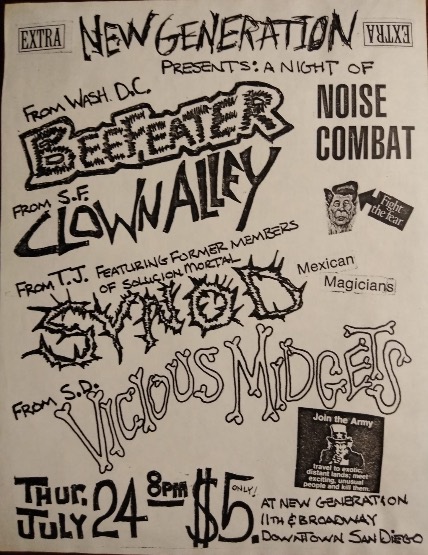 EXTRA NEW GENERATION EXTRA
PRESENTS: A NIGHT OF
NOISE
COMBAT
FROM WASH. D.C.
BEEFEATER
FROM S.F.
CLOWN ALLEY
Fight
the fear
FROM T.J. FEATURING FORMER MEMBERS
OF SOLUCION MORTAL
SYNOD
Mexican
Magicians
FROM S.D.
VICIOUS MIDGETS
Join the Army
travel to exotic,
distant lands; meet
exciting, unusual
people and kill them.
THUR. JULY 24 8PM $5. ONLY!
AT NEW GENERATION
11TH & BROADWAY
DOWNTOWN SAN DIEGO